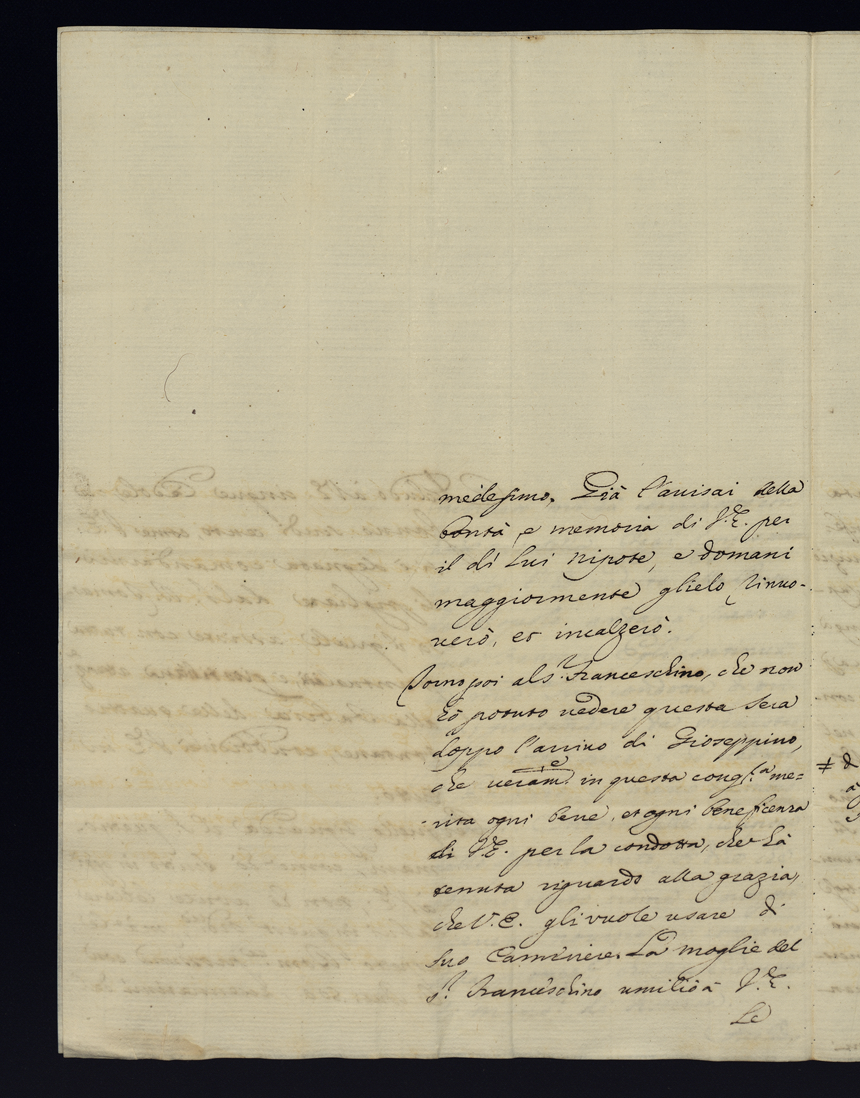 medesimo. Già l'avisai della
bontà, e memoria di V.E. per
il di Lui Nipote, e domani
maggiormente glielo rinuo-
verò, et incalzerò.
Torno poi al S.r Franceschino, che non
hò potuto vedere questa sera
doppo l'arrivo di Gioseppino,
che veram.e in questa cong.ra me-
rita ogni bene, et ogni beneficenza
di V.E. per la condotta, che hà
tenuta riguardo alla grazia,
che V.E. gli vuole usare di
suo Cameriere. La moglie del
S.r Franceschino umiliò à V.E.
Le